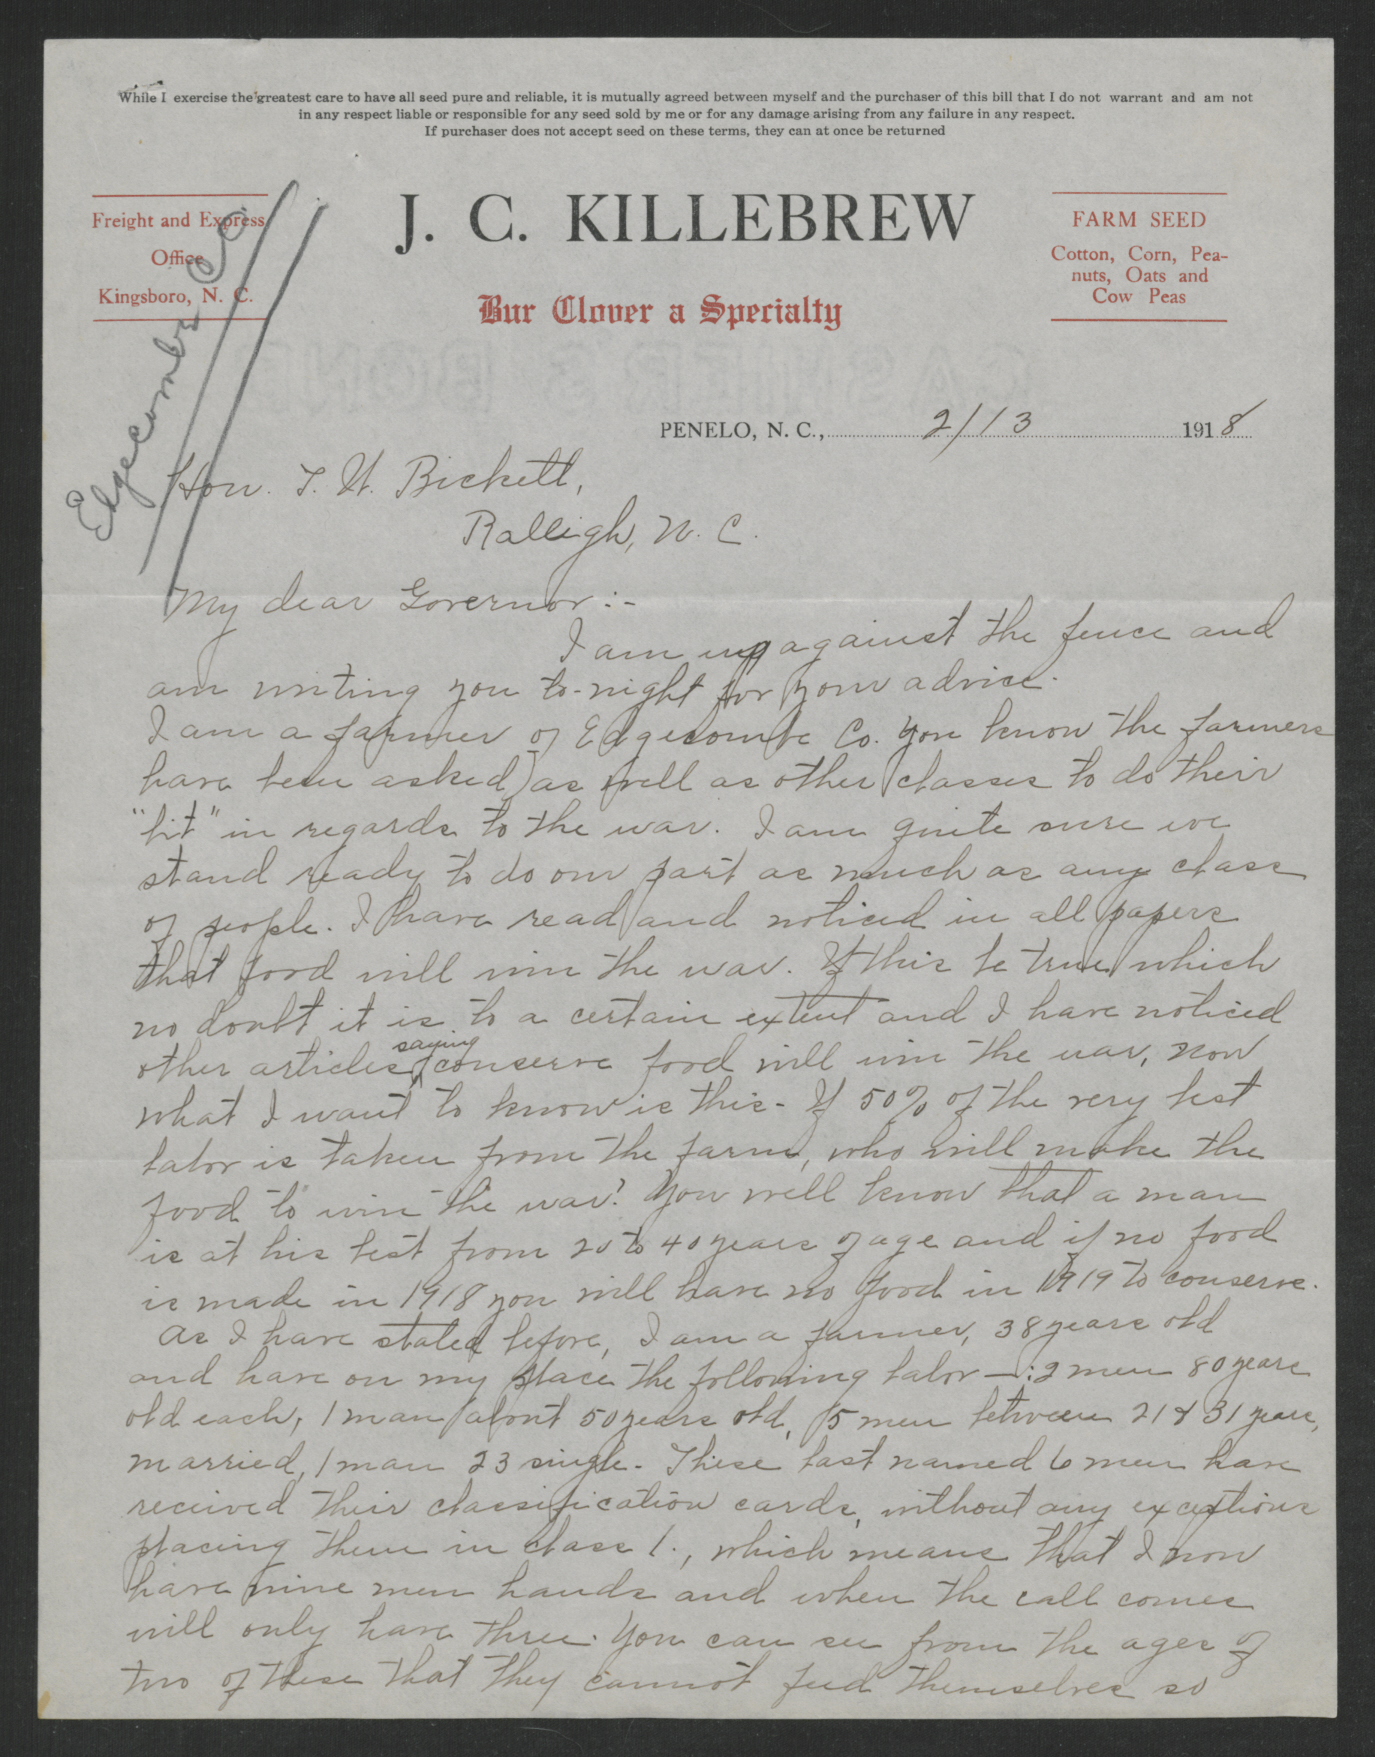 While I exercise the greatest care to have all seed pure and reliable, it is mutually agreed between myself and the purchaser of this bill that I do not warrant and am not
in any respect liable or responsible for any seed sold by me or for any damage arising from any failure in any respect.
If purchaser does not accept seed on these terms, they can at once be returned
Freight and Express
Office
Kingsboro, N. C.
J. C. KILLEBREW
Bur Clover a Specialty
FARM SEED
Cotton, Corn, Pea-
nuts, Oats and
Cow Peas
Edgecombe Co
PENELO, N. C., 2/13 1918
Hon. T. W. Bickett,
Raleigh, N. C.
My dear Governor:-
I am up against the fence and
am writing you to-night for your advice.
I am a farmer of Edgecombe Co. You know the farmers
have been asked, as well as other classes to do their
"bit" in regards to the war. I am quite sure we
stand ready to do our part as much as any class
of people. I have read and noticed in all papers
that food will win the war. If this be true, which
no doubt it is to a certain extent and I have noticed
other articles saying conserve food will win the war, now
what I want to know is this- If 50% of the very best
labor is taken from the farm, who will make the
food to win the war? You well know that a man
is at his best from 20 to 40 years of age and if no food
is made in 1918 you will have no food in 1919 to conserve.
As I have stated before, I am a farmer, 38 years old
and have on my place the following labor—: 2 men 80 years
old each, 1 man about 50 years old, 5 men between 21 & 31 years,
married, 1 man 23 single. These last named 6 men have
received their classification cards, without any exceptions
placing them in class 1., which means that I now
have nine men hands and when the call comes
will only have three. You can see from the ages of
two of these that they cannot feed themselves so